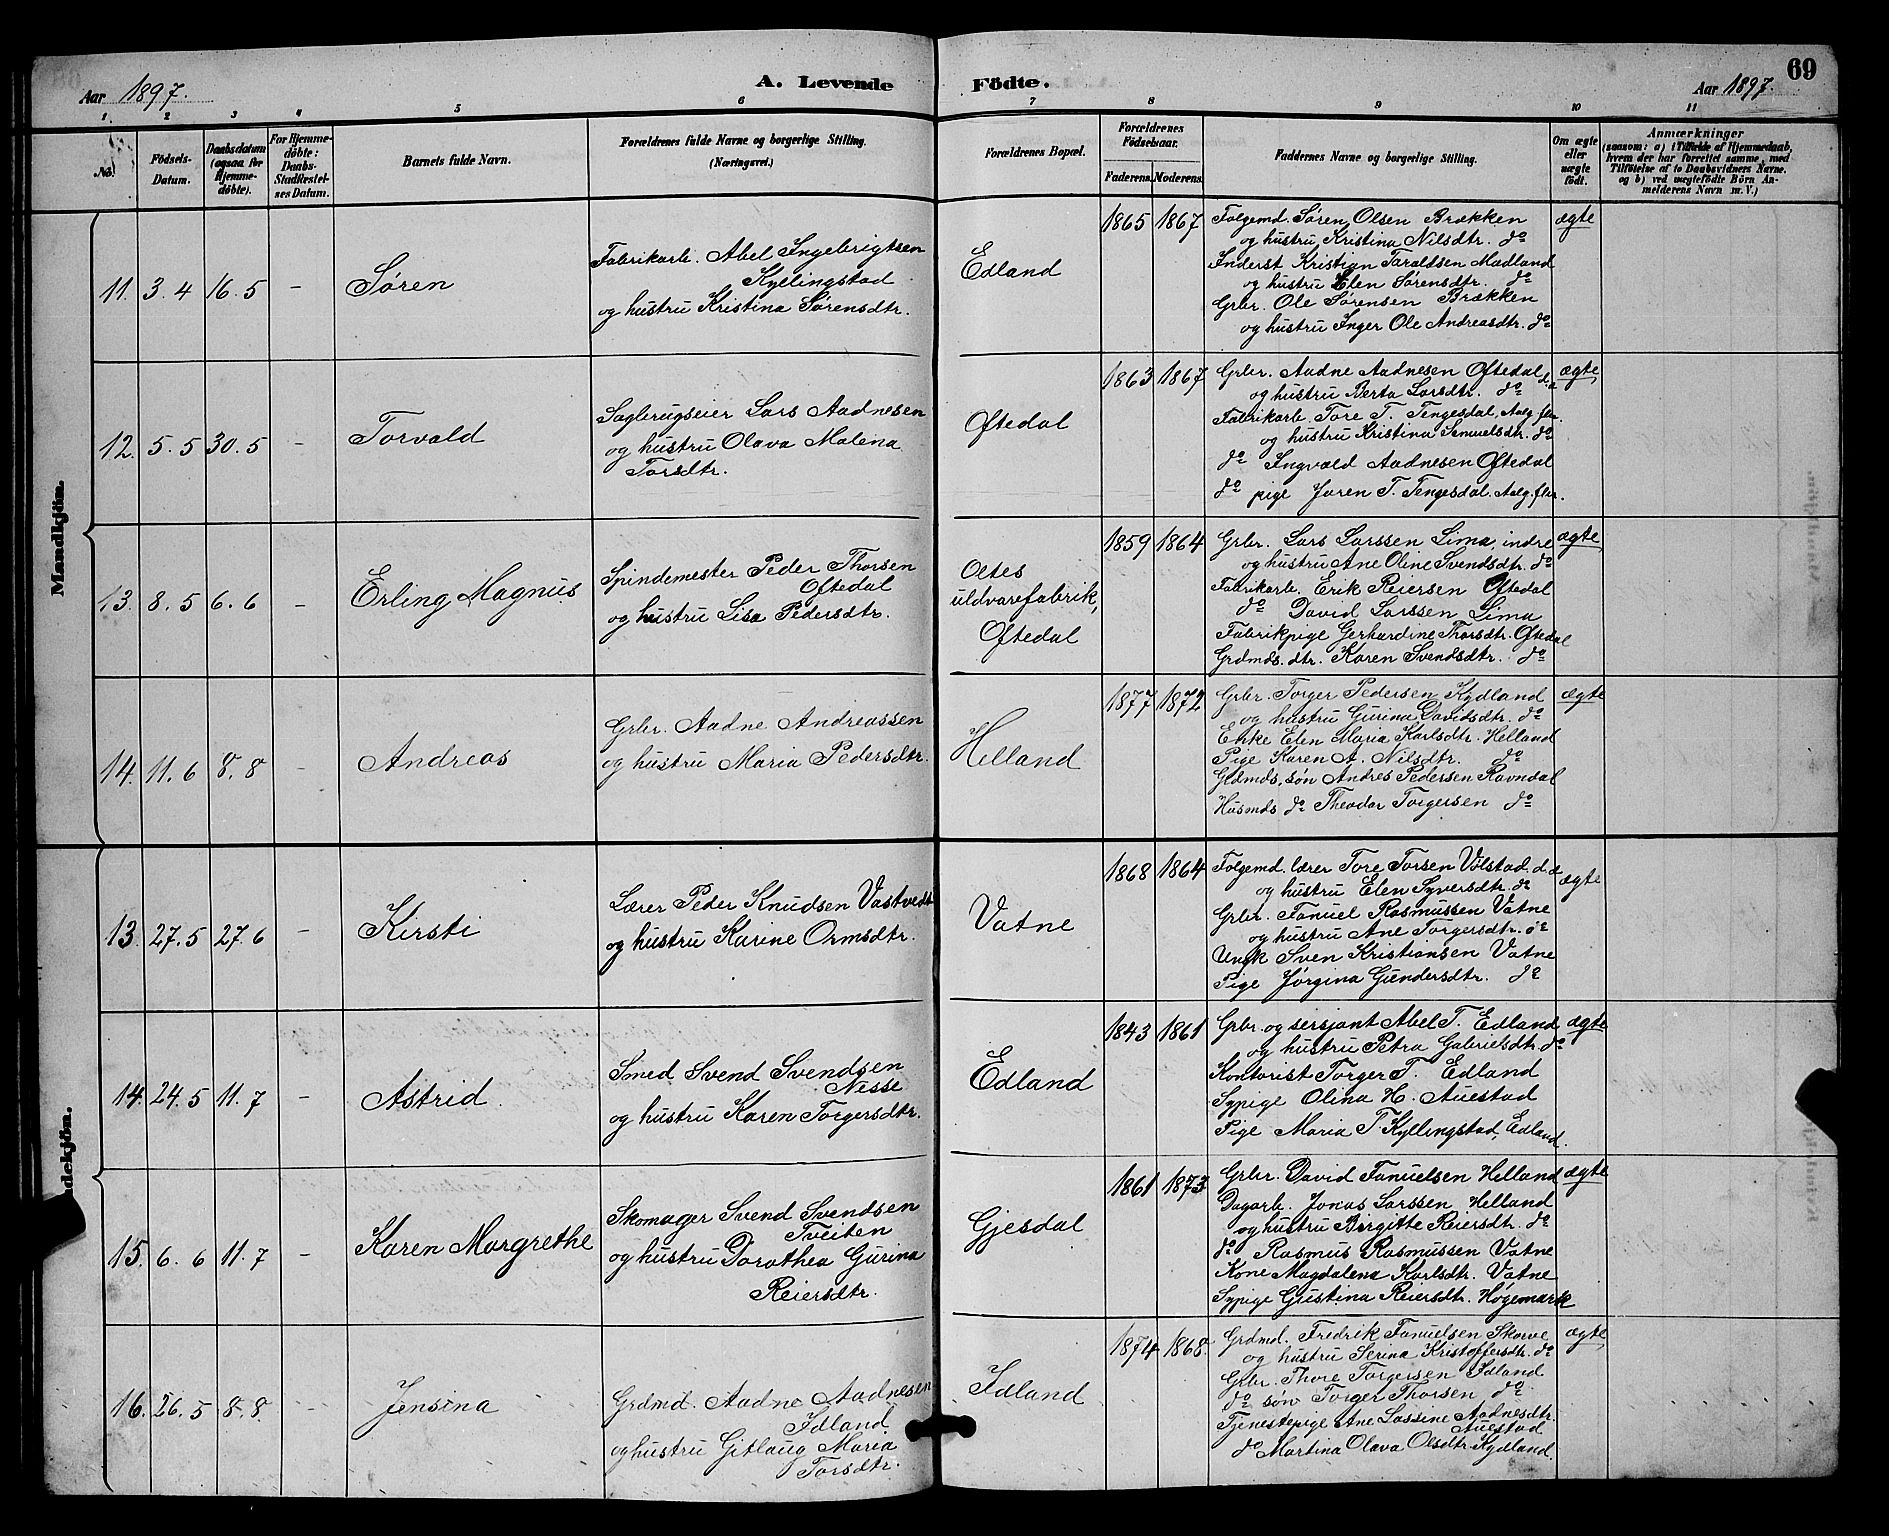 Aar 1897.
A. Levende Födte.
Aar 1897.
69
1 2 3 4 5 6 7 8 9 10 11
No.
Födsels-Datum.
Daabsdatum (ogsaa for Hjemme-döbte).
For Hjemme-döbte: Daabs-Stadfæstel-ses Datum.
Barnets fulde Navn.
Forældrenes fulde Navne og borgerlige Stilling. (Næringsvei.)
Forældrenes Bopæl.
Forældrenes Födselsaar.
Faderens. Moderens.
Faddernes Navne og borgerlige Stilling.
Om ægte eller uægte födt.
Anmærkninger
(saasom: a) i Tilfælde af Hjemmedaab, hvem der har forrettet samme, med Tilföielse af to Daabsvidners Navne. og b) ved uægtefödte Börn An-melderens Navn m. V.)
Mandkjön.
11. 3.4 16.5 - Søren
Fabrikarb. Abel Ingebrigtsen
Kyllingstad
og hustru Kristina Sørensdtr.
Edland
1865 1867
Følgemd. Søren Olsen Brækken
og hustru Kristina Nilsdtr. do
Inderst Kristian Taraldsen Madland
og hustru Elen Sørensdtr. do
Grbr. Ole Sørensen Brækken
og hustru Inger Ole Andreasdtr. do
ægte
12. 5.5 30.5 - Torvald
Sagbrugseier Lars Aadnesen
og hustru Olava Malena
Torsdtr.
Oftedal
1863 1867
Grbr. Aadne Aadnesen Oftedal
og hustru Berta Larsdtr. do
Fabrikarb Tore T. Tengesdal, Aalg.fbr.
og hustru Kristina Samuelsdtr. do
do Ingvald Aadnesen Oftedal
do pige Jaren T. Tengesdal, Aalg.fbr.
ægte
13. 8.5 6.6 - Erling Magnus
Spindemester Peder Thorsen
Oftedal
og hustru Lisa Pedersdtr.
Oltes
uldvarefabrik,
Oftedal
1859 1864
Grbr. Lars Larssen Lima, indre
og hustru Ane Oline Svendsdtr. do
Fabrikarb. Erik Reiersen Oftedal
do David Larssen Lima
Fabrikpige Gerhardine Thorsdtr. Oftedal
Grdmds. dtr. Karen Svendsdtr. do
ægte
14. 11.6 8.8 - Andreas
Grbr. Aadne Andreassen
og hustru Maria Pedersdtr.
Helland
1877 1872
Grbr. Torger Pedersen Kydland
og hustru Gurina Davidsdtr. do
Enke Elen Maria Karlsdtr. Helland
Pige Karen A. Nilsdtr. do
Grdmds. søn Andres Pedersen Ravndal
Husmds do Theodor Torgersen do
ægte
ndekjön.
13. 27.5 27.6 - Kirsti
Lærer Peder Knudsen Vastvedt
og hustru Karine Ormsdtr.
Vatne
1868 1864
Følgemd. lærer Tore Torsen Vølstad. d. æ
og hustru Elen Syversdtr. do
Grbr. Fanuel Rasmussen Vatne
og hustru Ane Torgersdtr. do
Ungk Sven Kristiansen Vatne
Pige Jørgina Gundersdtr. do
ægte
14. 24.5 11.7 - Astrid
Smed Svend Svendsen
Nesse
og hustru Karen Torgersdtr.
Edland
1843 1861
Grbr. og sersjant Abel T. Edland
og hustru Petra Gabrielsdtr. do
Kontorist Torger T. Edland
Sypige Olina H. Auestad
Pige Maria T Kyllingstad, Edland.
ægte
15. 6.6 11.7 - Karen Margrethe
Skomager Svend Svendsen
Tveiten
og hustru Dorothea Gurina
Reiersdtr.
Gjesdal
1861 1873
Grbr. David Fanuelsen Helland
Dagarb. Jonas Larssen Helland
og hustru Birgitte Reiersdtr. do
do Rasmus Rasmussen Vatne
Kone Magdalena Karlsdtr. Vatne
Sypige Gustina Reiersdtr. Høgemark
ægte
16. 26.5 8.8 - Jensina
Grdmd. Aadne Aadnesen
Idland
og hustru Gitlaug Maria
Torsdtr.
Idland
1874 1868.
Grdmd. Fredrik Fanuelsen Skorve
og hustru Serina Kristoffersdtr. do
Grbr. Thore Torgersen Idland
do søn Torger Thorsen do
Tjenestepige Ane Lassine Aadnesdtr.
Auestad
do Martina Olava Olsdtr. Kydland.
ægte